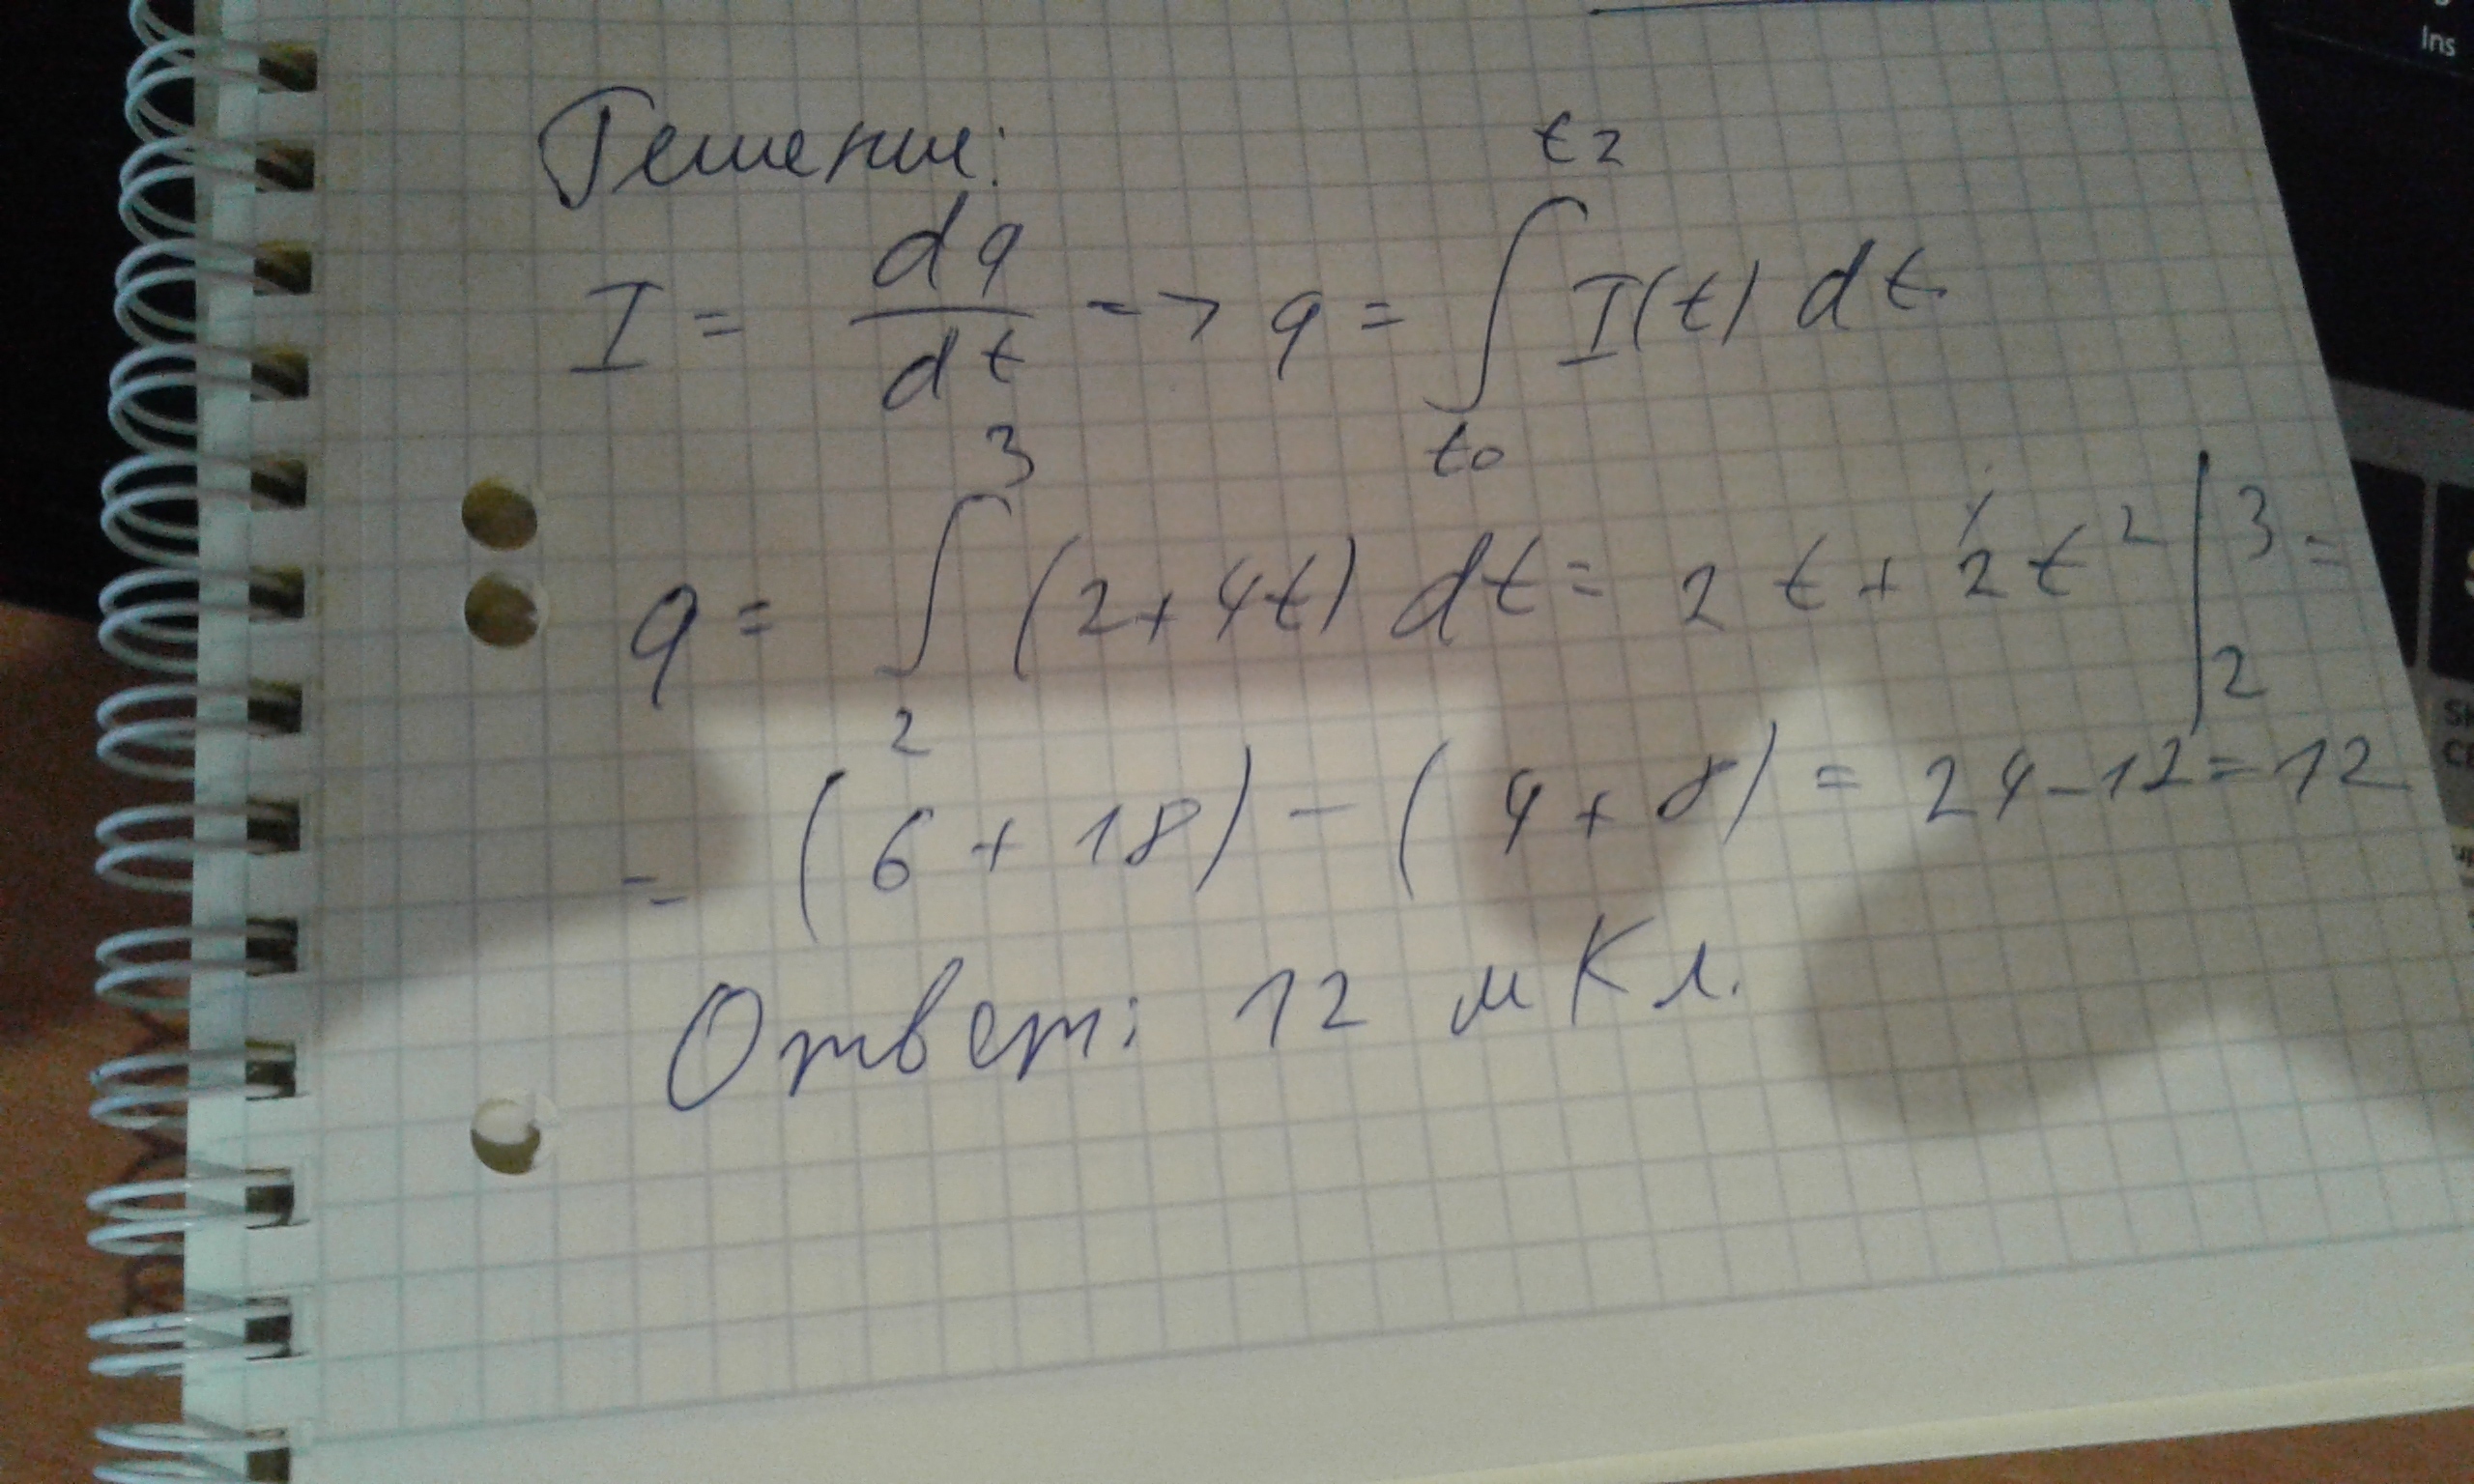 Решение:
I = dq/dt -> q = ∫_{t0}^{t2} I(t) dt
q = ∫_2^3 (2+4t) dt = 2t + 2t² |_2^3 =
= (6+18) - (4+8) = 24-12=12
Ответ: 12 мкКл.
Ins